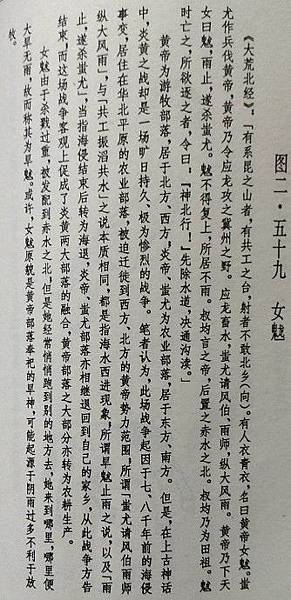 图二·五十九 女魃
《大荒北经》:“有系昆之山者,有共工之台,射者不敢北乡〈向〉。有人衣青衣,名曰黄帝女魃。蚩
尤作兵伐黄帝,黄帝乃令应龙攻之冀州之野。应龙畜水,蚩尤请风伯、雨师,纵大风雨。黄帝乃下天
女曰魃,雨止,遂杀蚩尤。魃不得复上,所居不雨。叔均言之帝,后置之赤水之北。叔均乃为田祖。魃
时亡之,所欲逐之者,令曰:‘神北行!’先除水道,决通沟渎。”
黄帝为游牧部落,居于北方、西方,炎帝、蚩尤为农业部落,居于东方、南方。但是,在上古神话
中,炎黄之战却是一场旷日持久、极为惨烈的战争。笔者认为,此场战争起因于七、八千年前的海侵
事变,居住在华北平原的农业部落,被迫迁徙到西方、北方的黄帝势力范围,所谓“蚩尤请风伯雨师
纵大风雨”,与“共工振滔洪水”之说本质相同,都是指海水西进现象,所谓旱魃止雨之说,以及“雨
止,遂杀蚩尤”,当指海侵结束后转为海退,炎帝、蚩尤部落亦相继退回到自己的家乡,从此战争方告
结束,而这场战争客观上促成了炎黄两大部落的融合,黄帝部落之大部分亦转为农耕生产。
女魃由于杀戮过重,被发配到赤水之北,但是她经常悄悄跑到别的地方去,她来到哪里,哪里便
大旱无雨,故而称其为旱魃。或许,女魃原貌是黄帝部落奉祀的旱神,可能起源于阴雨过多不利于放
牧。